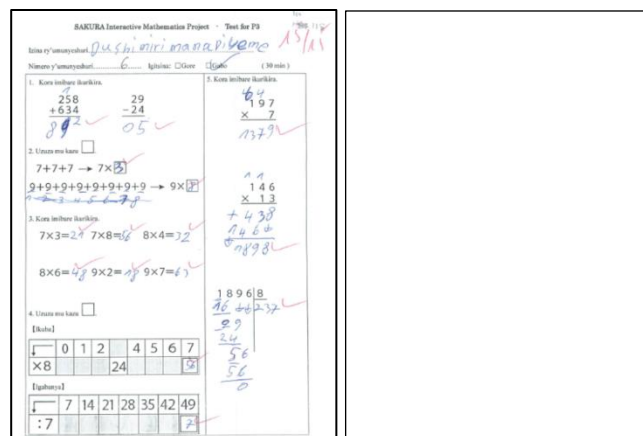 SAKURA Interactive Mathematics Project - Test for P3
15/15
Izina ry'umunyeshuri Dushimirimana
Nimero y'umunyeshuri 6 Igitsina: □Gore □Gabo (30 min)
1. Kora imibare ikurikira.
1
258
+634
892
29
-24
05
2. Uzuza mu kazu □.
7+7+7 → 7×3
9+9+9+9+9+9+9+9 → 9×8
3. Kora imibare ikurikira.
7×3=21 7×8=56 8×4=32
8×6=48 9×2=18 9×7=63
4. Uzuza mu kazu □.
【Ikuba】
0 1 2 4 5 6 7
×8 24 56
【Igabanya】
7 14 21 28 35 42 49
:7 7
5. Kora imibare ikurikira.
64
197
× 7
1379
11
146
× 13
+438
146
1898
1896 8
16 237
29
24
56
56
0